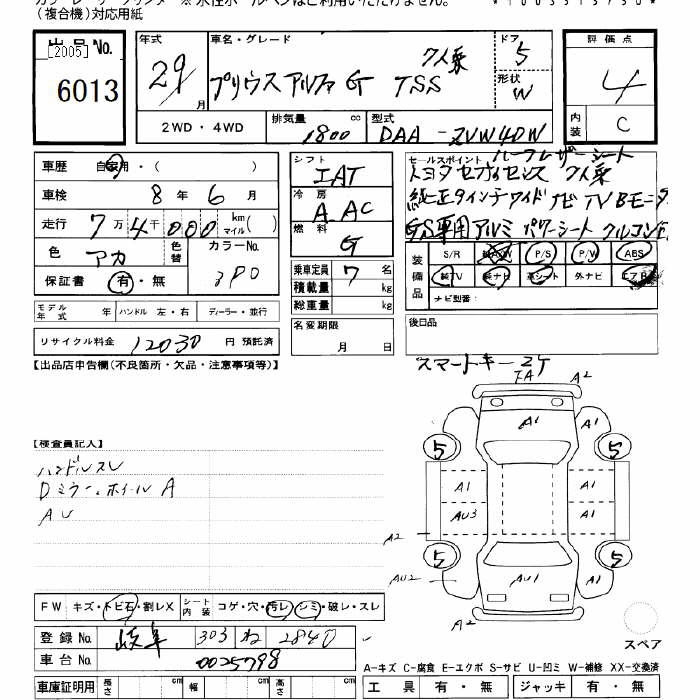 (複合機)対応用紙
出品No.
[2005]
6013
年式
29
月
車名・グレード
7人乗
プリウスアルファ G TSS
ドア
5
形状
W
評価点
4
内装
C
2WD・4WD
排気量
1800
cc
型式
DAA-ZVW40W
車歴
自家用・( )
車検
8 年 6 月
走行
7万4千000 km マイル( )
色
アカ
色替
カラーNo.
3P0
保証書
有・無
シフト
IAT
冷房
AAC
燃料
G
乗車定員
7
名
積載量
kg
総重量
kg
セールスポイント
ハーフレザーシート
トヨタセーフティセンス 7人乗
純正9インチワイドナビ TV Bモニタ
G'S専用アルミ パワーシート クルコン
装備品
S/R
純A/W
P/S
P/W
ABS
純TV
純ナビ
革シート
外ナビ
エアB
ナビ型番:
モデル年式
年
ハンドル
左・右
ディーラー・並行
リサイクル料金
12030
円
預託済
名変期限
月 日
後日品
スマートキー2ケ
【出品店申告欄(不良箇所・欠品・注意事項等)】
FA
A2
A1
A1
A1
5
5
A1
A1
AU3
A1
A2
5
5
AU2
AU1
A1
A2
【検査員記入】
ハンドルスレ
Dミラー、ホイールA
AU
FW
キズ・トビ石・割レX
シート内装
コゲ・穴・汚レ・シミ・破レ・スレ
登録No.
岐阜
303
ね
2840
車台No.
0025798
スペア
A-キズ C-腐食 E-エクボ S-サビ U-凹ミ W-補修 XX-交換済
車庫証明用
長さ
cm
幅
cm
高さ
cm
工具
有・無
ジャッキ
有・無